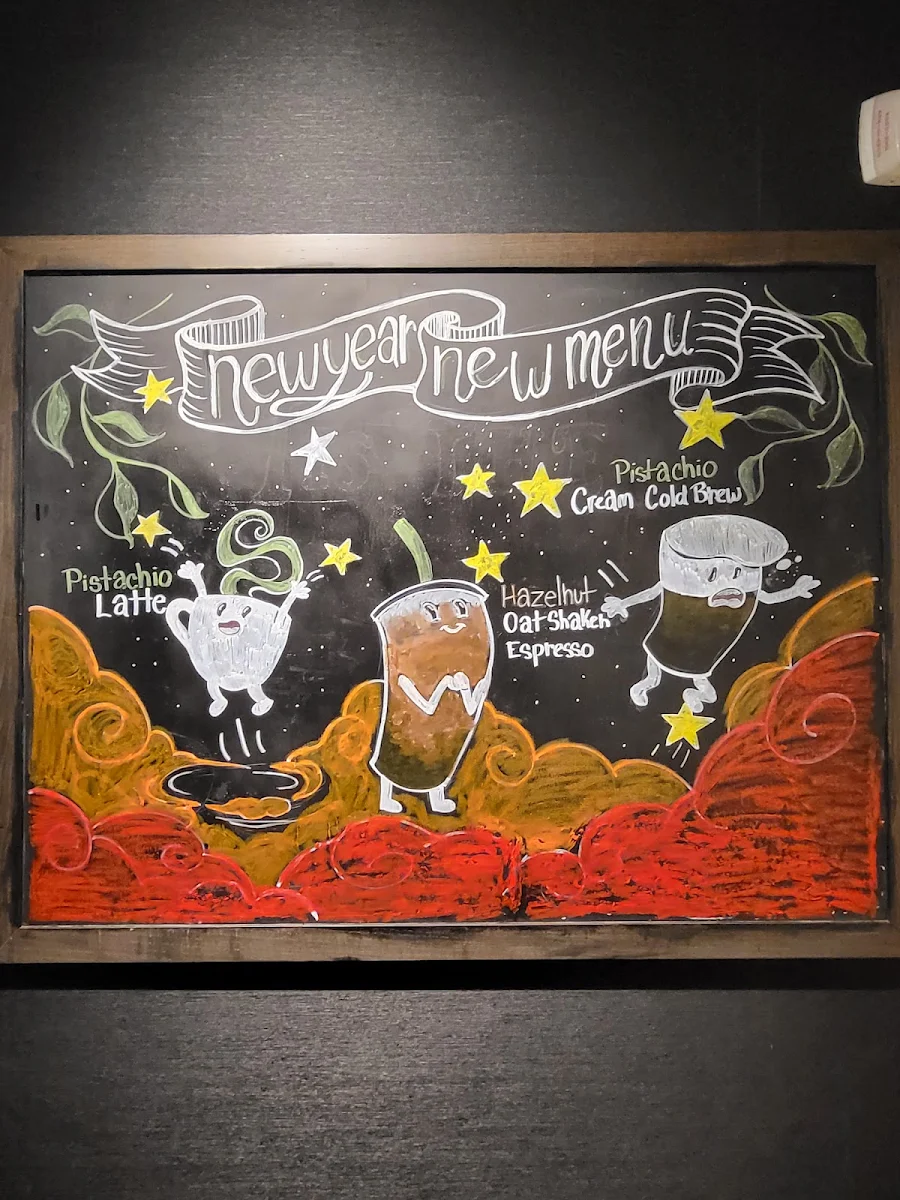 new year new menu
Pistachio
Cream Cold Brew
Pistachio
Latte
Hazelnut
Oat Shaken
Espresso